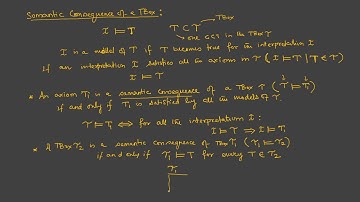 Semantic Consequence of a TBox:
I ⊨ T T ⊂ 𝒯 → TBox
↳ one GCI in the TBox 𝒯
I is a model of T if T becomes true for the interpretation I
If an interpretation I satisfies all the axioms in 𝒯 (I ⊨ T | T ∈ 𝒯)
I ⊨ 𝒯
* An axiom T₁ is a semantic consequence of a TBox 𝒯 (𝒯 ⊨ T₁)
if and only if T₁ is satisfied by all the models of 𝒯.
𝒯 ⊨ T₁ ⟺ for all the interpretations I:
I ⊨ 𝒯 ⇒ I ⊨ T₁
* A TBox 𝒯₂ is a semantic consequence of TBox 𝒯₁ (𝒯₁ ⊨ 𝒯₂)
if and only if 𝒯₁ ⊨ T for every T ∈ 𝒯₂
𝒯₁